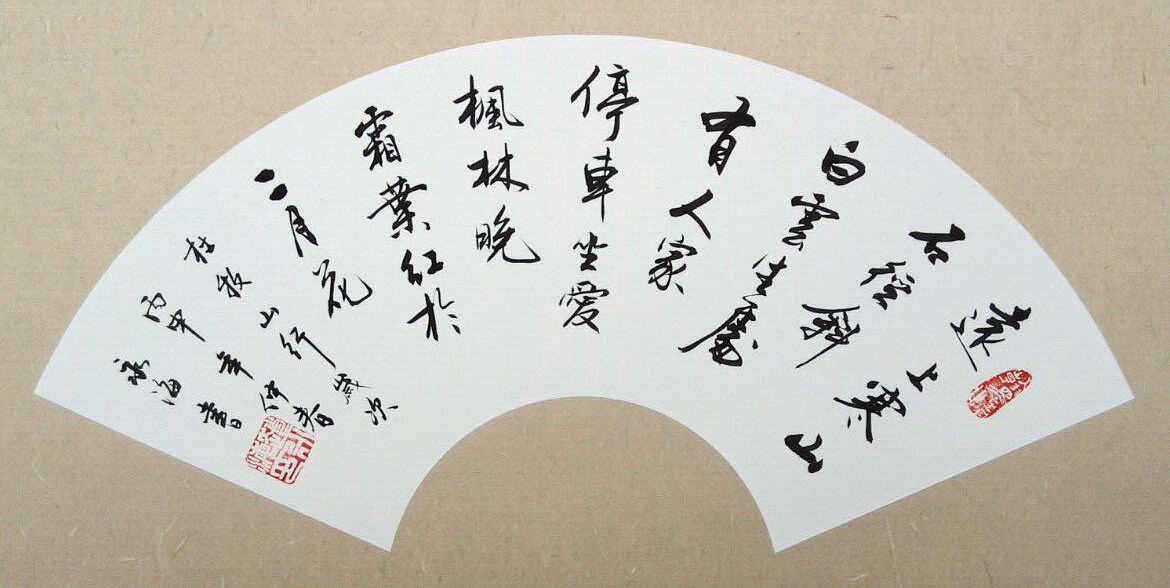 遠上寒山
石徑斜
白雲生處
有人家
停車坐愛
楓林晚
霜葉紅於
二月花
杜牧山行歲次
丙申年仲春
海書